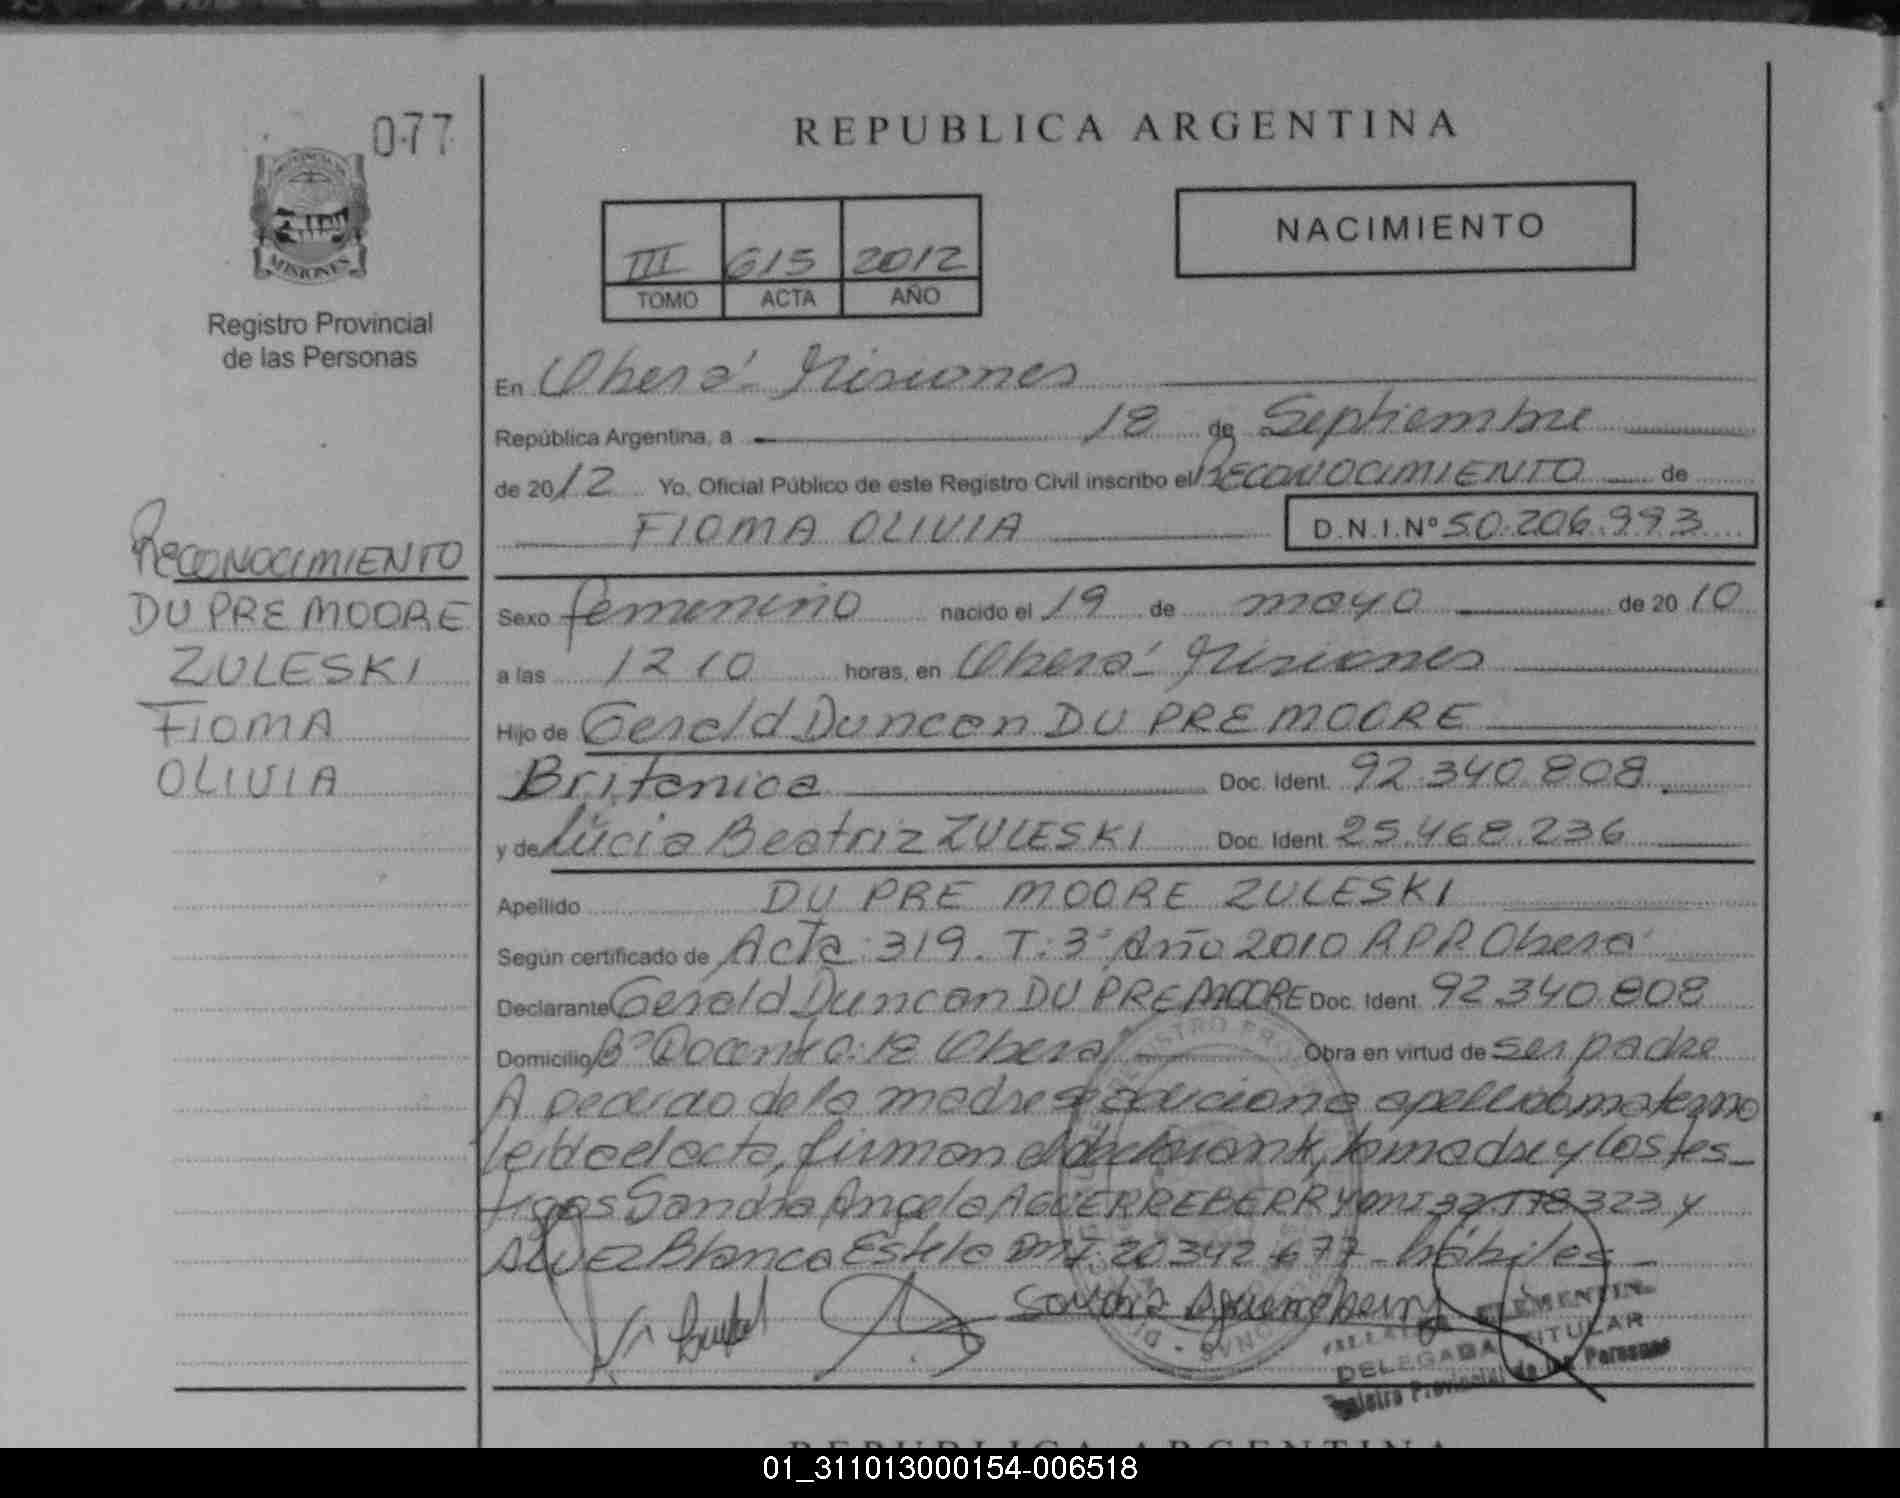 077
REPUBLICA ARGENTINA
PROVINCIA DE
MISIONES
Registro Provincial
de las Personas
III 615 2012
TOMO ACTA AÑO
NACIMIENTO
En Oberá Misiones
República Argentina, a 18 de Septiembre
de 2012 Yo, Oficial Público de este Registro Civil inscribo el RECONOCIMIENTO de
FIOMA OLIVIA D.N.I.Nº 50.206.993
RECONOCIMIENTO
DU PRE MOORE
ZULESKI
FIOMA
OLIVIA
Sexo femenino nacido el 19 de mayo de 2010
a las 12 10 horas, en Oberá Misiones
Hijo de Gerald Duncan DU PRE MOORE
Britanica Doc. Ident. 92.340.808
y de Lucia Beatriz ZULESKI Doc. Ident. 25.468.236
Apellido DU PRE MOORE ZULESKI
Según certificado de Acta: 319. T: 3º Año 2010 R.P.P. Oberá
Declarante Gerald Duncan DU PRE MOORE Doc. Ident. 92.340.808
Domicilio Bº Docente C: 18 Oberá Obra en virtud de ser padre
A pedido de la madre se adiciona apellido materno
leida el acta, firman el declarante, la madre y los tes-
tigos Sandra Angela AGUERREBERRY DNI 32.178.323 y
ALVEZ Blanca Estela DNI. 20.342.677 - hábiles
Sandra Aguerreberry
DELEGADA TITULAR
Registro Provincial de las Personas
REPUBLICA ARGENTINA
01_311013000154-006518